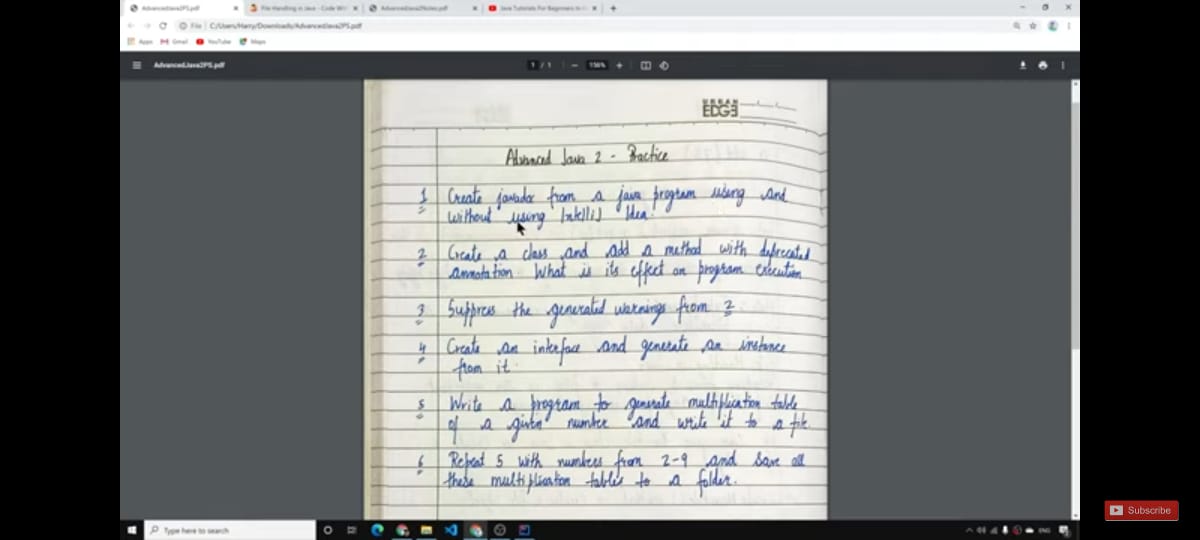 AdvancedJava2PS.pdf
File Handling in Java - Code Wit
AdvancedJava2Notes.pdf
Java Tutorials For Beginners In H
File
C:/Users/Harry/Downloads/AdvancedJava2PS.pdf
Apps
Gmail
YouTube
Maps
AdvancedJava2PS.pdf
1 / 1
156%
URBAN
EDGE
Advanced Java 2 - Practice
1 Create javadoc from a java program using and
without using IntelliJ Idea.
2 Create a class and add a method with deprecated
annotation. What is its effect on program execution
3 Suppress the generated warnings from 2
4 Create an interface and generate an instance
from it.
5 Write a program to generate multiplication table
of a given number and write it to a file.
6 Repeat 5 with numbers from 2-9 and save all
these multiplication tables to a folder.
Subscribe
Type here to search
ENG